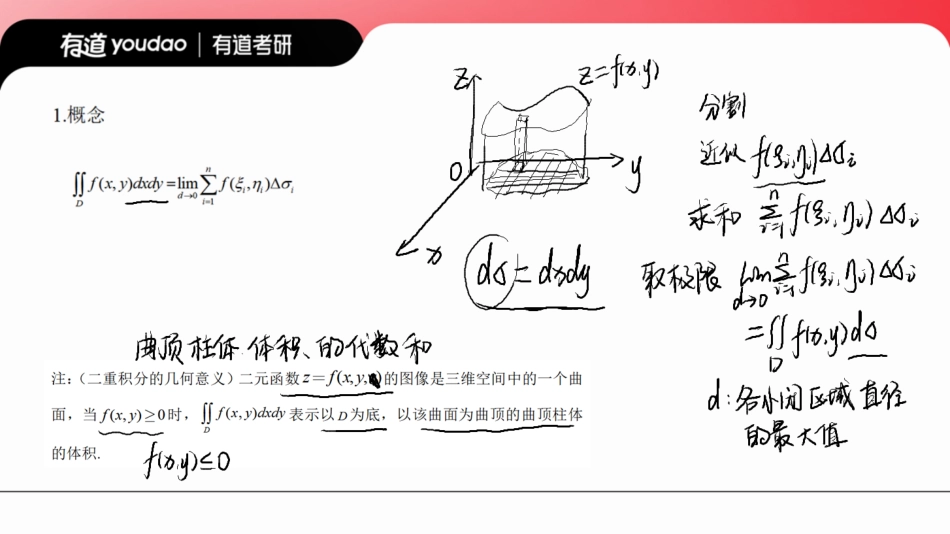 有道 youdao | 有道考研
1.概念
∬_D f(x, y)dxdy = lim_{d→0} ∑_{i=1}^{n} f(ξ_i, η_i)Δσ_i
z
z=f(x,y)
0
y
x
dσ = dxdy
分割
近似 f(ξ_i,η_i)Δσ_i
求和 ∑_{i=1}^{n} f(ξ_i,η_i)Δσ_i
取极限 lim_{d→0} ∑_{i=1}^{n} f(ξ_i,η_i)Δσ_i
=∬_D f(x,y)dσ
d:各小闭区域直径
的最大值
曲顶柱体体积的代数和
注:(二重积分的几何意义)二元函数 z=f(x,y)的图像是三维空间中的一个曲
面,当 f(x,y)≥0 时,∬_D f(x,y)dxdy 表示以 D 为底,以该曲面为曲顶的曲顶柱体
的体积.
f(x,y)≤0